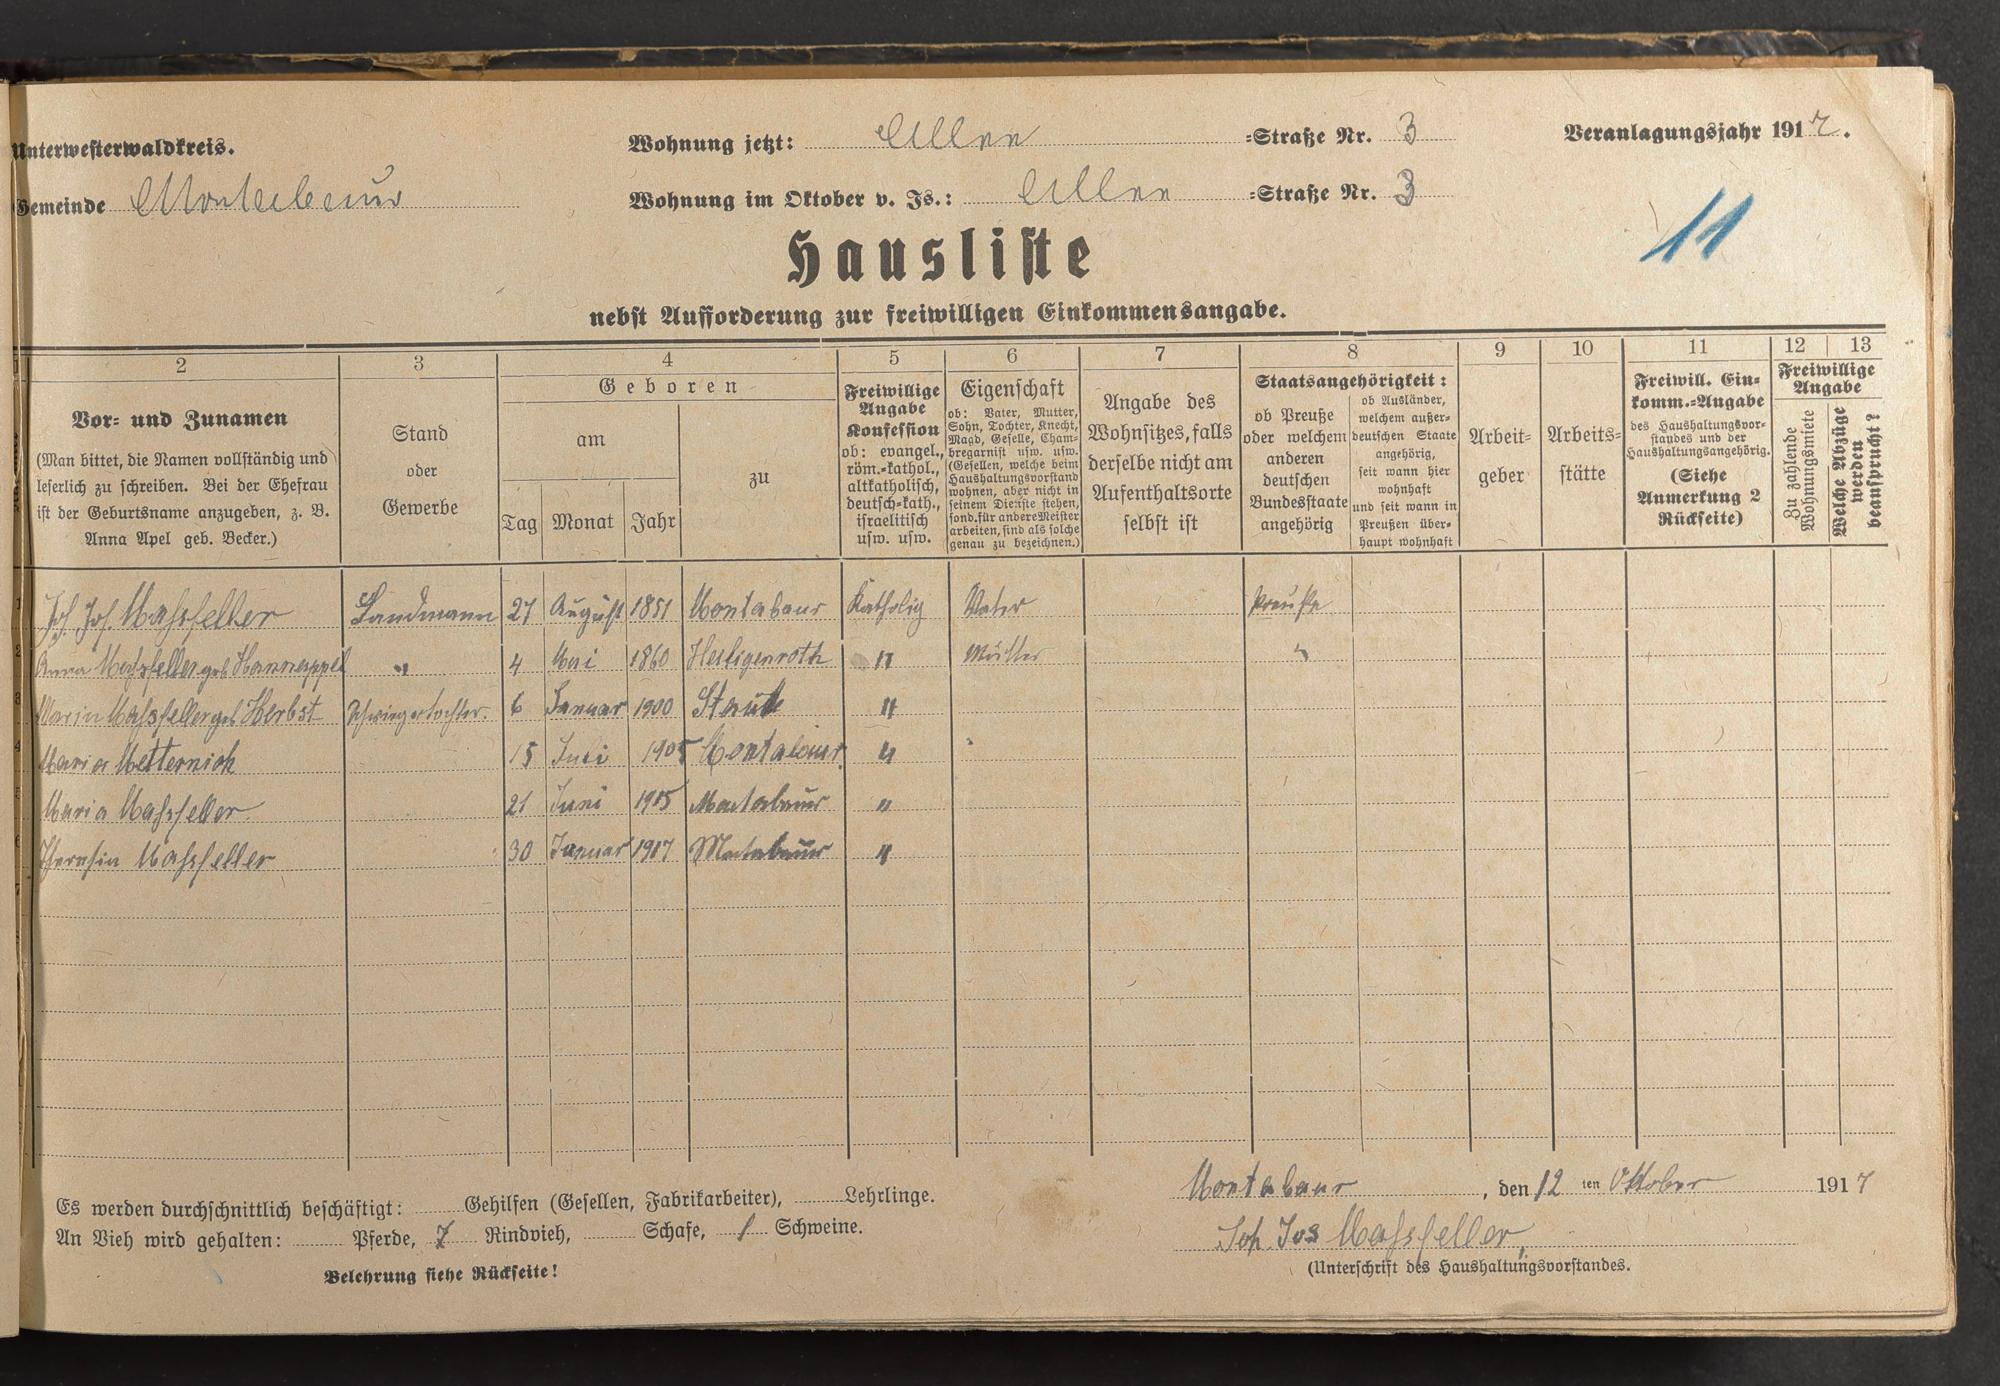 Unterwesterwaldkreis.
Wohnung jetzt: Allee =Straße Nr. 3
Veranlagungsjahr 1917.
Gemeinde Montabaur
Wohnung im Oktober v. Js.: Allee =Straße Nr. 3
11
Hausliste
nebst Aufforderung zur freiwilligen Einkommensangabe.
2 3 4 5 6 7 8 9 10 11 12 13
Vor= und Zunamen
(Man bittet, die Namen vollständig und
leserlich zu schreiben. Bei der Ehefrau
ist der Geburtsname anzugeben, z. B.
Anna Apel geb. Becker.)
Stand
oder
Gewerbe
Geboren
am
Tag Monat Jahr
zu
Freiwillige
Angabe
Konfession
ob: evangel.,
röm.=kathol.,
altkatholisch,
deutsch=kath.,
israelitisch
usw. usw.
Eigenschaft
ob: Vater, Mutter,
Sohn, Tochter, Knecht,
Magd, Geselle, Cham-
bregarnist usw. usw.
(Gesellen, welche beim
Haushaltungsvorstand
wohnen, aber nicht in
seinem Dienste stehen,
sond. für andere Meister
arbeiten, sind als solche
genau zu bezeichnen.)
Angabe des
Wohnsitzes, falls
derselbe nicht am
Aufenthaltsorte
selbst ist
Staatsangehörigkeit:
ob Preuße
oder welchem
anderen
deutschen
Bundesstaate
angehörig
ob Ausländer,
welchem außer=
deutschen Staate
angehörig,
seit wann hier
wohnhaft
und seit wann in
Preußen über=
haupt wohnhaft
Arbeit=
geber
Arbeits=
stätte
Freiwill. Ein=
komm.=Angabe
des Haushaltungsvor=
standes und der
Haushaltungsangehörig.
(Siehe
Anmerkung 2
Rückseite)
Freiwillige
Angabe
Zu zahlende
Wohnungsmiete
Welche Abzüge
werden
beansprucht?
1 Joh. Jos. Massfeller Landmann 27 August 1851 Montabaur Katholig Vater Preuße
2 Anna Massfeller geb Hannappel " 4 Mai 1860 Heiligenroth " Mutter "
3 Maria Massfeller geb Herbst Schwiegertochter. 6 Januar 1900 Staudt "
4 Maria Metternich 15 Juli 1905 Montabaur "
5 Maria Massfeller 21 Juni 1915 Montabaur "
6 Theresia Massfeller 30 Januar 1917 Montabaur "
7
Es werden durchschnittlich beschäftigt: Gehilfen (Gesellen, Fabrikarbeiter), Lehrlinge.
An Vieh wird gehalten: Pferde, 7 Rindvieh, Schafe, 1 Schweine.
Belehrung siehe Rückseite!
Montabaur, den 12 ten Oktober 1917
Joh. Jos Massfeller
(Unterschrift des Haushaltungsvorstandes.